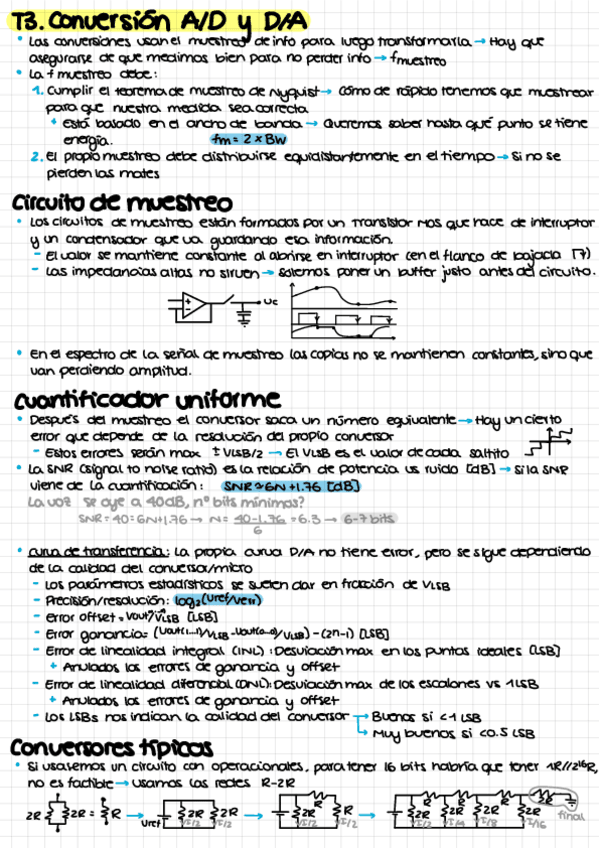 T3. Conversión A/D y D/A
• Las conversiones usan el muestreo de info para luego transformarla → Hay que
asegurarse de que medimos bien para no perder info → fmuestreo
• La f muestreo debe:
1. Cumplir el teorema de muestreo de Nyquist → Cómo de rápido tenemos que muestrear
para que nuestra medida sea correcta
+ Está basado en el ancho de banda → Queremos saber hasta qué punto se tiene
energía. fm = 2 x BW
2. El propio muestreo debe distribuirse equidistantemente en el tiempo → Si no se
pierden las mates
Circuito de muestreo
• Los circuitos de muestreo están formados por un transistor MOS que hace de interruptor
y un condensador que va guardando esa información.
- El valor se mantiene constante al abrirse en interruptor (en el flanco de bajada)
- Las impedancias altas no sirven → Solemos poner un buffer justo antes del circuito.
Vc
• En el espectro de la señal de muestreo las copias no se mantienen constantes, sino que
van perdiendo amplitud.
Cuantificador uniforme
• Después del muestreo el conversor saca un número equivalente → Hay un cierto
error que depende de la resolución del propio conversor
- Estos errores serán max ± VLSB/2 → El VLSB es el valor de cada saltito
• La SNR (signal to noise ratio) es la relación de potencia vs ruido [dB] → Si la SNR
viene de la cuantificación: SNR≈6N+1.76 [dB]
La voz se oye a 40dB, nº bits mínimos?
SNR=40=6N+1.76 → N= 40-1.76/6 = 6.3 → 6-7 bits
• curva de transferencia: La propia curva D/A no tiene error, pero se sigue dependiendo
de la calidad del conversor/micro
- Los parámetros estadísticos se suelen dar en fracción de VLSB
- Precisión/resolución: log2(Vref/Verr)
- Error offset = Vout/VLSB [LSB]
- Error ganancia= (Vout(1...1)/VLSB - Vout(0...0)/VLSB) - (2n-1) [LSB]
- Error de linealidad integral (INL): Desviación max en los puntos ideales [LSB]
+ Anulados los errores de ganancia y offset
- Error de linealidad diferencial (DNL): Desviación max de los escalones vs 1LSB
+ Anulados los errores de ganancia y offset
- Los LSBs nos indican la calidad del conversor → Buenos si <1 LSB
→ Muy buenos si <0.5 LSB
Conversores típicos
• Si usasemos un circuito con operacionales, para tener 16 bits habría que tener 1R//2¹⁶R,
no es factible → usamos las redes R-2R
2R 2R = R → Vref 2R 2R → R 2R R → R R R 2R 2R 2R 2R 2R
I/2 I/2 I/2 I/2 I/2 I/4 I/8 I/16 final